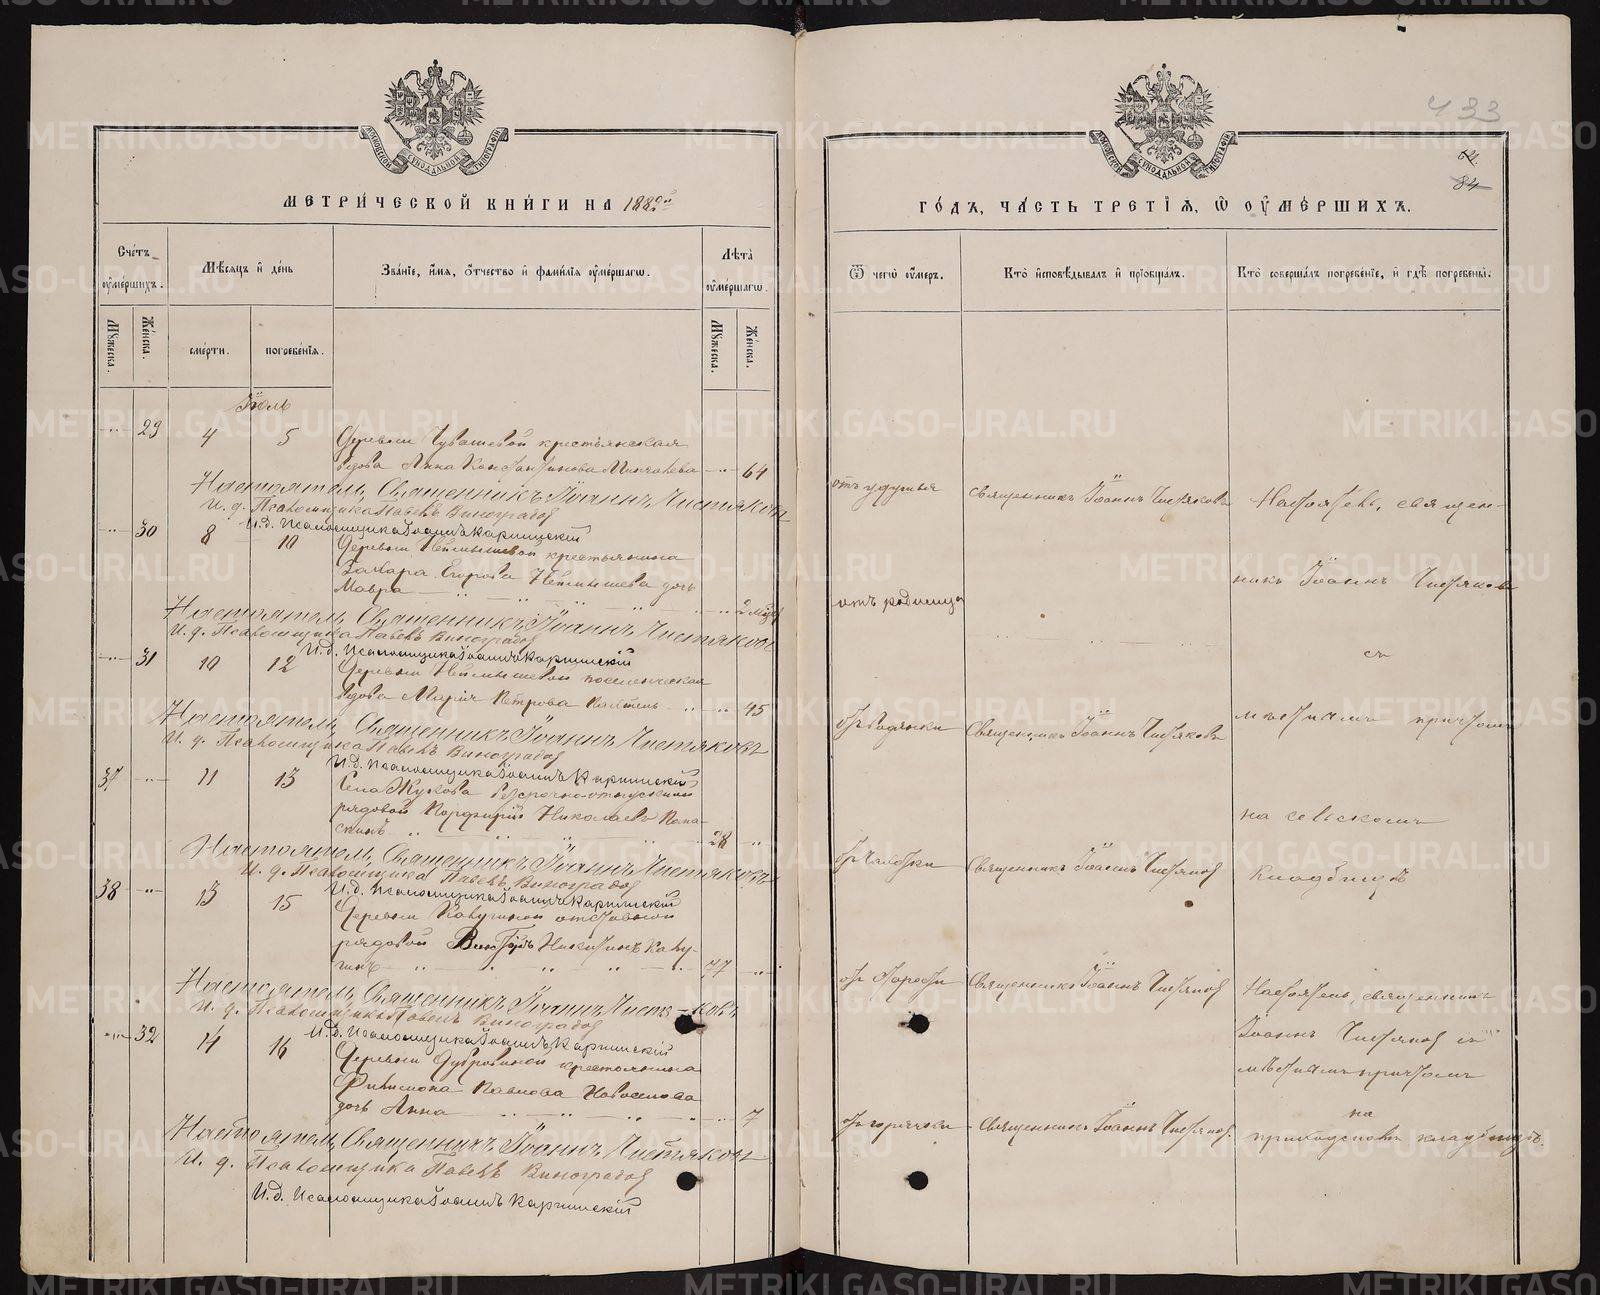 МЕТРИ́ЧЕСКОЙ КНИ́ГИ НА 1882ой
Счетъ
оумершихъ.
Мужеска.
Женска.
Мѣсяцъ и день
смерти.
погребенія.
Званіе, имя, отчество и фамилія оумершагѡ.
Лѣта
оумершагѡ.
Мужеска.
Женска.
Іюль
29 4 5 Деревни Чувашевой крестьянская
вдова Анна Константинова 64
Настоятель, Священникъ Іоаннъ Чистяковъ
И. д. Псаломщика Павелъ Виноградов
И.д. Псаломщика Іоаннъ Карпинскій
30 8 10 Деревни крестьянина
Захара Егорова дочь
Мавра 2 мѣс
Настоятель, Священникъ Іоаннъ Чистяковъ
И. д. Псаломщика Павелъ Виноградов
И.д. Псаломщика Іоаннъ Карпинскій
31 10 12 Деревни поселенческая
вдова Марія Петрова 45
Настоятель, Священникъ Іоаннъ Чистяковъ
И. д. Псаломщика Павелъ Виноградов
И.д. Псаломщика Іоаннъ Карпинскій
37 11 13 Села Жукова безсрочно-отпускной
рядовой Порфирій Николаевъ
28
Настоятель, Священникъ Іоаннъ Чистяковъ
И. д. Псаломщика Павелъ Виноградов
И.д. Псаломщика Іоаннъ Карпинскій
38 13 15 Деревни отставной
рядовой Никитинъ
77
Настоятель, Священникъ Іоаннъ Чистя-ковъ
И. д. Псаломщика Павелъ Виноградов
И.д. Псаломщика Іоаннъ Карпинскій
32 14 16 Деревни Дубровиной крестьянина
Филимона Павлова Новоселова
дочь Анна 7
Настоятель, Священникъ Іоаннъ Чистяковъ
И. д. Псаломщика Павелъ Виноградов
И.д. Псаломщика Іоаннъ Карпинскій
433
64.
84
ГО́ДЪ, ЧА́СТЬ ТРЕ́ТІѦ, Ѡ ОУМЕ́РШИХЪ.
Ѿ чегѡ оумеръ.
Кто исповѣдывалъ и пріобщалъ.
Кто совершалъ погребеніе, и гдѣ погребены.
отъ удушья Священникъ Іоаннъ Чистяковъ Настоятель, священ-
никъ Іоаннъ Чистяковъ
отъ родимца
съ
Священникъ Іоаннъ Чистяковъ мѣстнымъ причтомъ
на сельскомъ
от чахотки Священникъ Іоаннъ Чистяков кладбищѣ
от старости Священникъ Іоаннъ Чистяков Настоятель, священникъ
Іоаннъ Чистяков съ
мѣстнымъ причтомъ
на
от горячки Священникъ Іоаннъ Чистяков. приходскомъ кладбищѣ.
METRIKI.GASO-URAL.RU